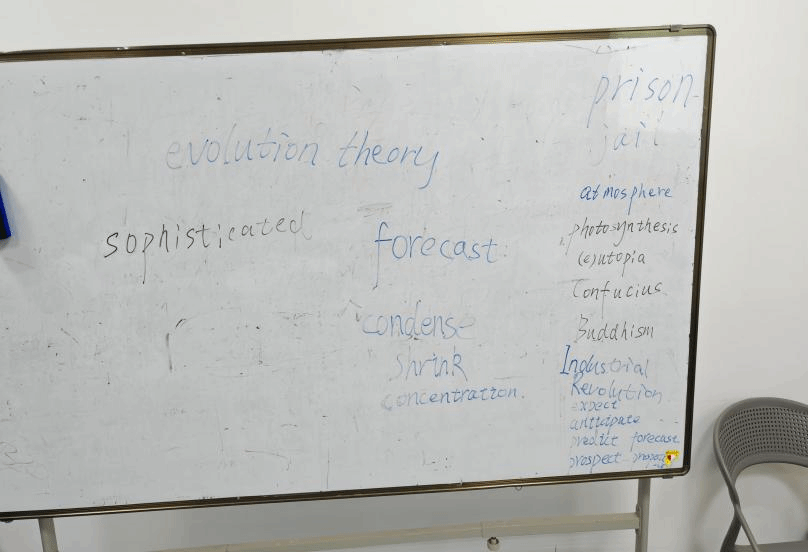 evolution theory
sophisticated
forecast
condense
shrink
concentration.
prison
jail
atmosphere
photosynthesis
(e)utopia
Confucius
Buddhism
Industrial
Revolution
expect
anticipate
predict forecast
prospect